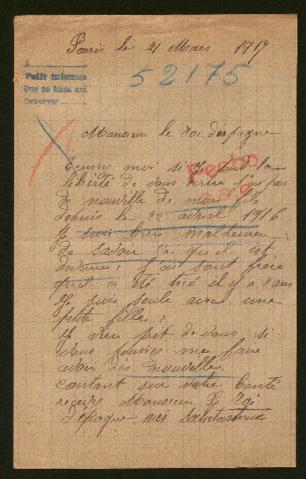 Paris le 21 Mars 1917
A
Pedir informes
Que se haga así
Devolver
52175
Monsieur le Roi d'espagne
Excuse moi si je prend la
liberté de vous écrire j'ai pas
de nouvelle de mon fils
depuis le 22 avril 1916
Je suis bien malheureuse
de savoir ce qu'il est
devenue! j'ai sont frère
qui a été tué il y a 2 ans
Je suis seule avec une
petite fille?
Je vien prè de vous si
vous pouvez me faire
avoir des nouvelle
contant sur votre bonté
recevez Monsieur Le Roi
d'espagne mes salutations
Hecho